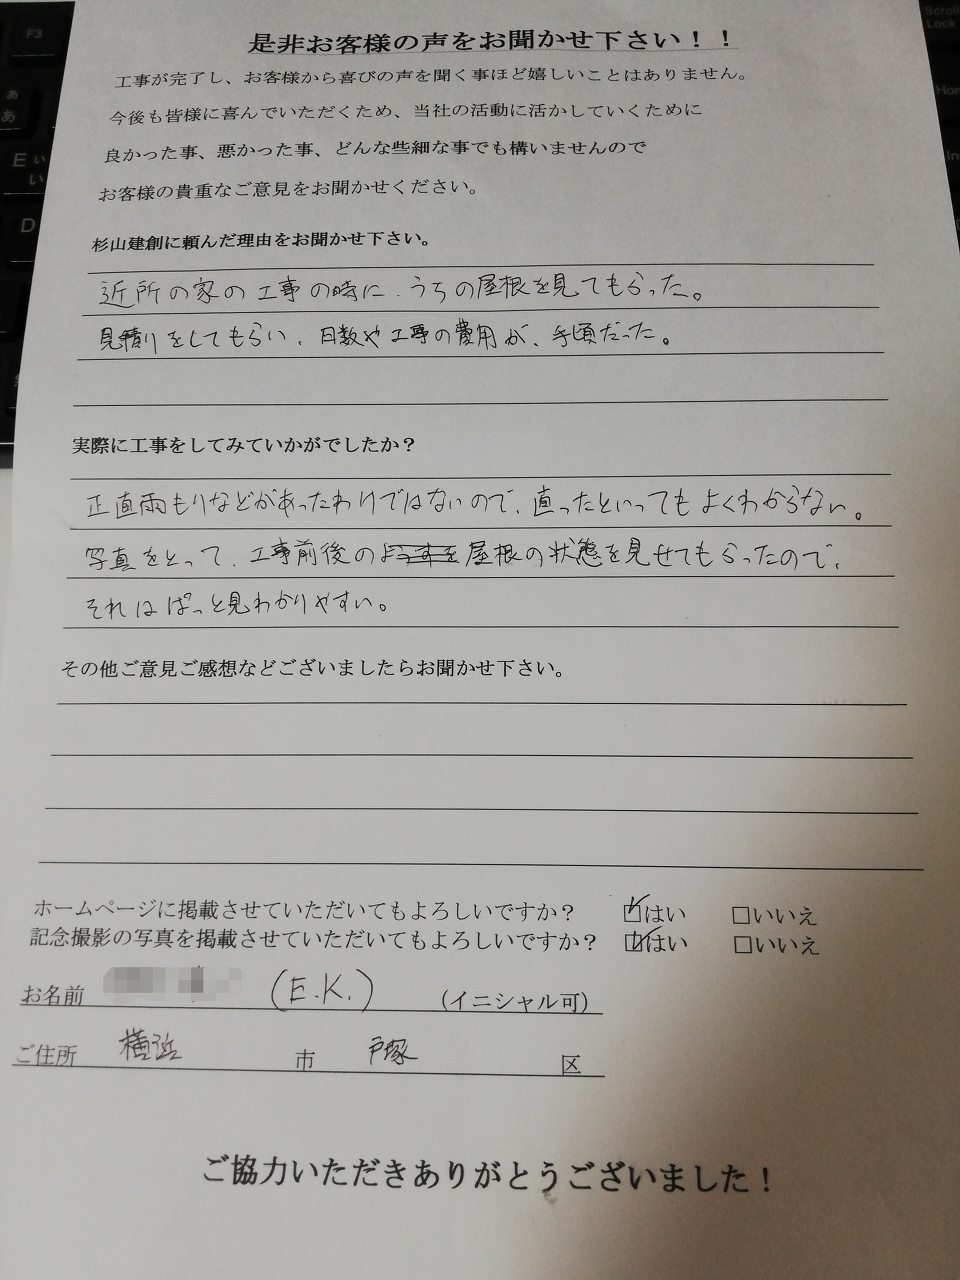 是非お客様の声をお聞かせ下さい！！
工事が完了し、お客様から喜びの声を聞く事ほど嬉しいことはありません。
今後も皆様に喜んでいただくため、当社の活動に活かしていくために
良かった事、悪かった事、どんな些細な事でも構いませんので
お客様の貴重なご意見をお聞かせください。
杉山建創に頼んだ理由をお聞かせ下さい。
近所の家の工事の時に、うちの屋根を見てもらった。
見積りをしてもらい、日数や工事の費用が、手頃だった。
実際に工事をしてみていかがでしたか？
正直雨もりなどがあったわけではないので、直ったといってもよくわからない。
写真をとって、工事前後の屋根の状態を見せてもらったので、
それはぱっと見わかりやすい。
その他ご意見ご感想などございましたらお聞かせ下さい。
ホームページに掲載させていただいてもよろしいですか？ ☑はい □いいえ
記念撮影の写真を掲載させていただいてもよろしいですか？ ☑はい □いいえ
お名前 (E.K.) (イニシャル可)
ご住所 横浜 市 戸塚 区
ご協力いただきありがとうございました！
F3
E い
D
Scroll
Lock